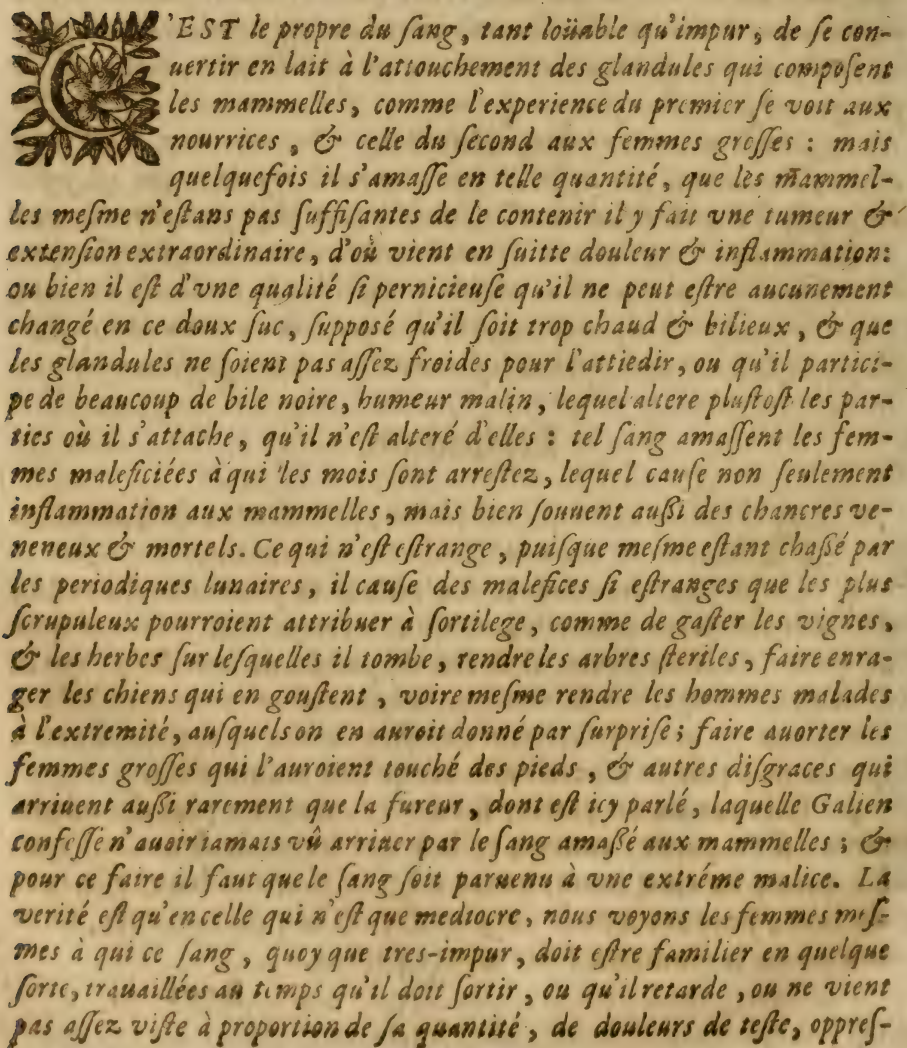 C'EST le propre du ſang, tant loüable qu'impur, de ſe con-
uertir en lait à l'attouchement des glandules qui compoſent
les mammelles, comme l'experience du premier ſe voit aux
nourrices, & celle du ſecond aux femmes groſſes : mais
quelquefois il s'amaſſe en telle quantité, que les mammel-
les meſme n'eſtans pas ſuffiſantes de le contenir il y fait vne tumeur &
extenſion extraordinaire, d'où vient en ſuitte douleur & inflammation:
ou bien il eſt d'vne qualité ſi pernicieuſe qu'il ne peut eſtre aucunement
changé en ce doux ſuc, ſuppoſé qu'il ſoit trop chaud & bilieux, & que
les glandules ne ſoient pas aſſez froides pour l'attiedir, ou qu'il partici-
pe de beaucoup de bile noire, humeur malin, lequel altere pluſtoſt les par-
ties où il s'attache, qu'il n'eſt alteré d'elles : tel ſang amaſſent les fem-
mes maleficiées à qui les mois ſont arreſtez, lequel cauſe non ſeulement
inflammation aux mammelles, mais bien ſouuent auſſi des chancres ve-
neneux & mortels. Ce qui n'eſt eſtrange, puiſque meſme eſtant chaſſé par
les periodiques lunaires, il cauſe des malefices ſi eſtranges que les plus
ſcrupuleux pourroient attribuer à ſortilege, comme de gaſter les vignes,
& les herbes ſur leſquelles il tombe, rendre les arbres ſteriles, faire enra-
ger les chiens qui en gouſtent, voire meſme rendre les hommes malades
à l'extremité, auſquels on en auroit donné par ſurpriſe ; faire auorter les
femmes groſſes qui l'auroient touché des pieds, & autres diſgraces qui
arriuent auſſi rarement que la fureur, dont eſt icy parlé, laquelle Galien
confeſſe n'auoir iamais vû arriuer par le ſang amaſſé aux mammelles ; &
pour ce faire il faut que le ſang ſoit paruenu à vne extréme malice. La
verité eſt qu'en celle qui n'eſt que mediocre, nous voyons les femmes meſ-
mes à qui ce ſang, quoy que tres-impur, doit eſtre familier en quelque
ſorte, trauaillées au temps qu'il doit ſortir, ou qu'il retarde, ou ne vient
pas aſſez viſte à proportion de ſa quantité, de douleurs de teſte, oppreſ-